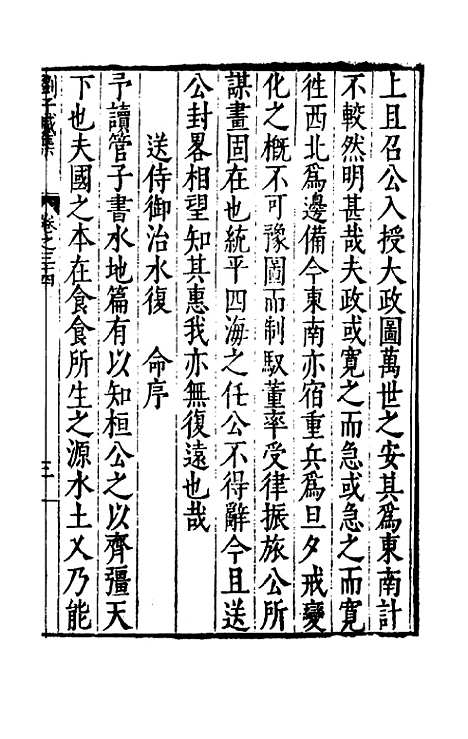 上且召公入授大政圖萬世之安其爲東南計
不較然明甚哉夫政或寛之而急或急之而寛
徃西北爲邊備今東南亦宿重兵爲旦夕戒變
化之槪不可豫圖而制馭董率受律振旅公所
謀畫固在也統平四海之任公不得辭今且送
公封畧相望知其惠我亦無復遠也哉
送侍御治水復　命序
予讀管子書水地篇有以知桓公之以齊彊天
下也夫國之本在食食所生之源水土乂乃能
劉子威集　卷之三十四　三